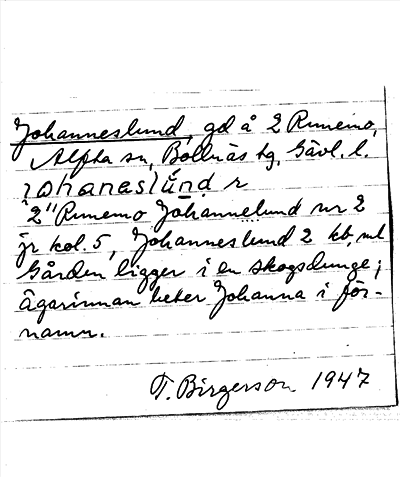 Johanneslund, gd å 2 Runemo,
Alfta sn, Bollnäs tg, Gävl. l.
ɿohanaslúnd r
"2" Runemo Johannelund nr 2
jr kol. 5, Johanneslund 2 kb ml
Gården ligger i en skogsdunge;
ägarinnan heter Johanna i för-
namn.
T. Birgerson 1947